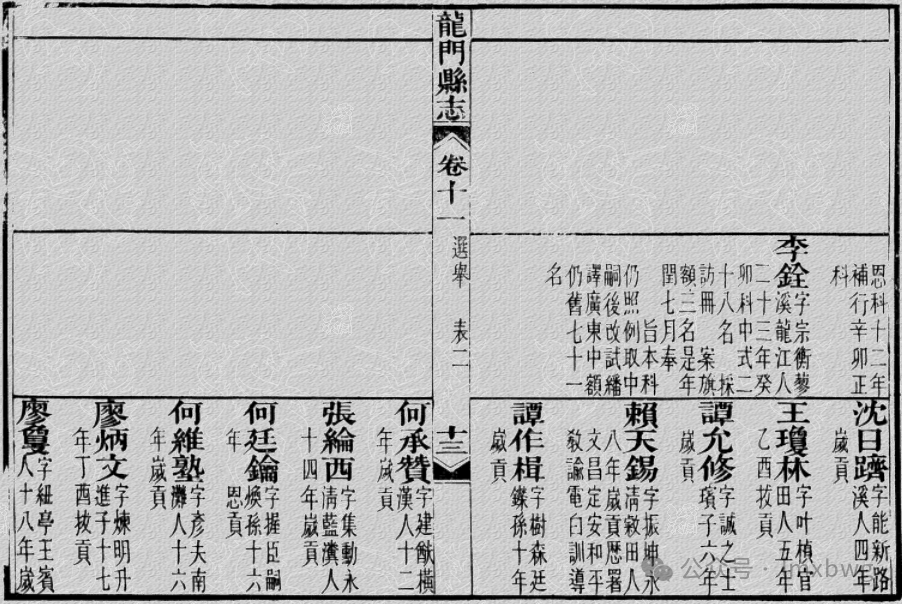 恩科十二年
補行辛卯正
科
李銓字宗衡蓼
溪龍江人
二十三年癸
卯科中式二
十八名 採
訪冊 案旗
額三名是年
閏七月奉
旨本科
仍照例取中
嗣後改試繙
譯廣東中額
仍舊七十一
名
沈日躋字能新路
溪人四年
歲貢
王瓊林字叶楨官
田人五年
乙酉拔貢
譚允修字誠之士
璸子六年
歲貢
賴天錫字振坤永
清敦田人
八年歲貢歷署
文昌定安和平
教諭電白訓導
譚作楫字樹森廷
鏷孫十年
歲貢
龍門縣志 卷十一 選舉 表二 十三
何承贊字建猷橫
漢人十二
年歲貢
張綸西字集勳永
清藍瀵人
十四年歲貢
何廷鑰字握臣嗣
煥孫十六
年恩貢
何維塾字彥夫南
灘人十六
年歲貢
廖炳文字煉明升
進子十七
年丁酉拔貢
廖字紐亭王賓
人十八年歲
公众号 · lmxbwg